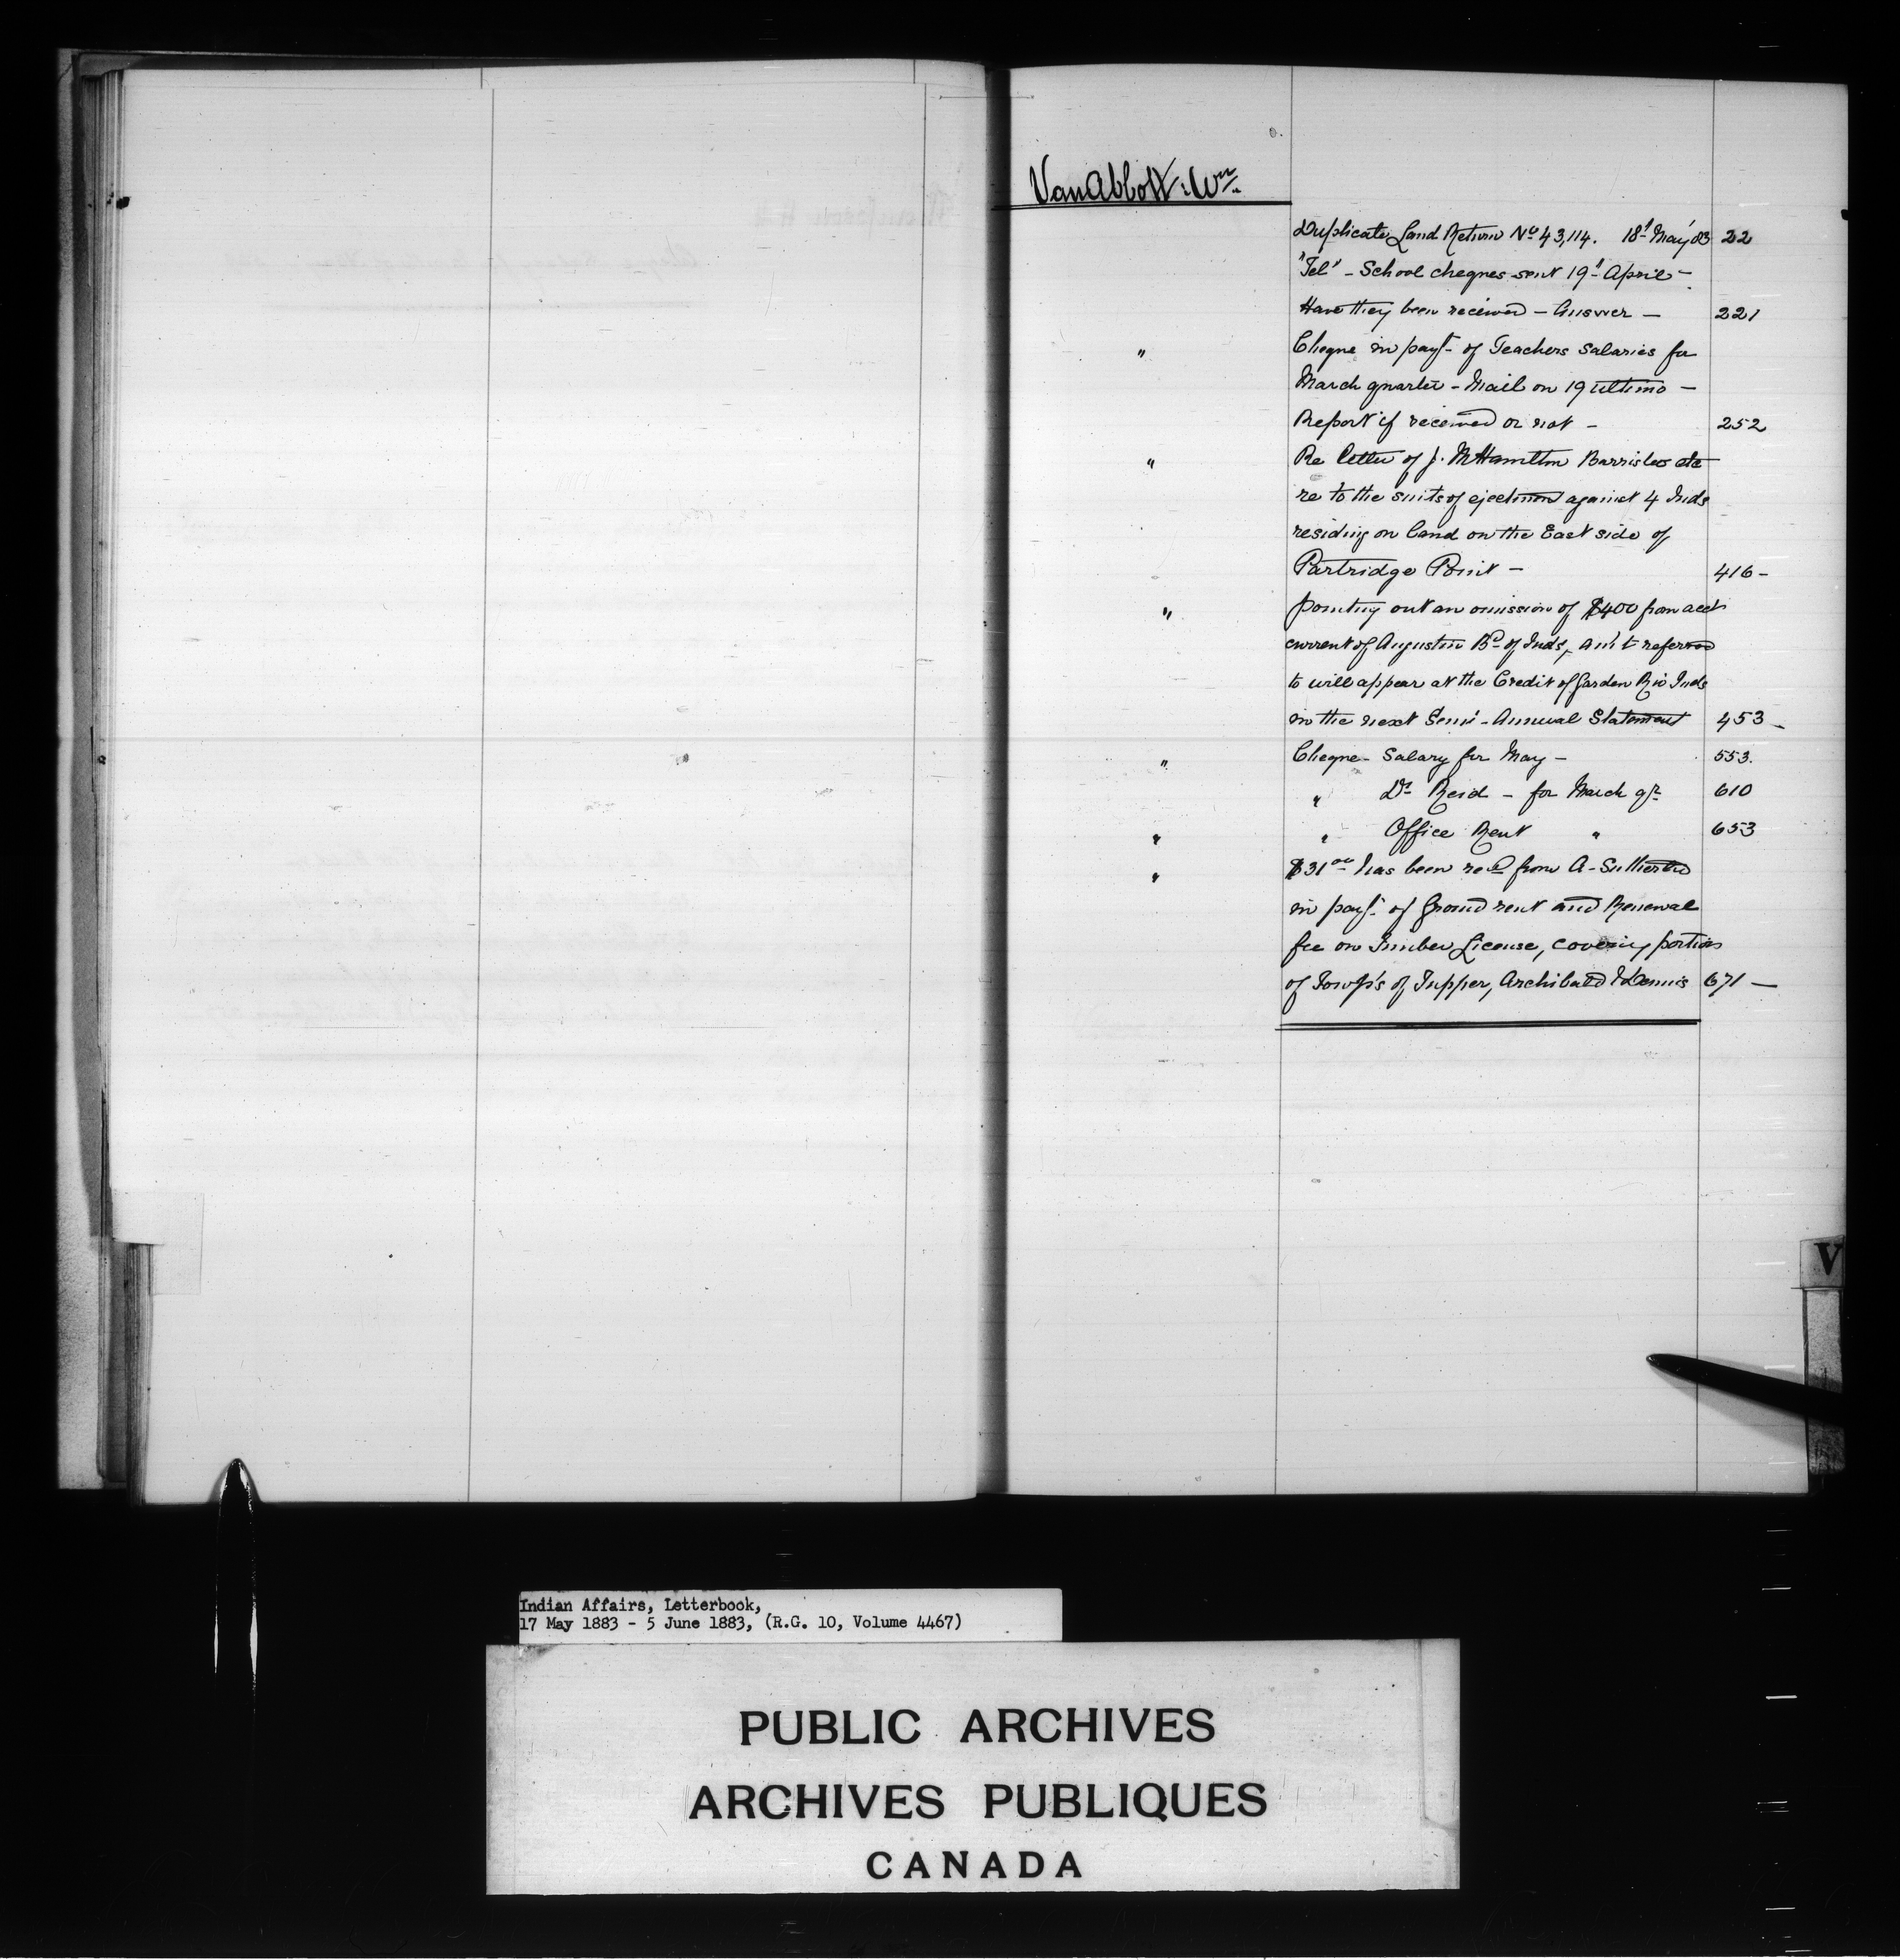 VanAbbott. Wm.
Duplicate Land Return No 43,114. 18t May 83 22
"Tel" - School cheques sent 19t April -
Have they been received - Answer - 221
" Cheque in payt of Teachers Salaries for
March quarter - Mail on 19 ultimo -
Report if received or not - 252
" Re letter of J. M Hamilton Barrister etc
re to the suits of ejectment against 4 Inds
residing on land on the East side of
Partridge Point - 416 -
" pointing out an omission of $400 from acct
current of Augustin Bd of Inds, am't referred
to will appear at the Credit of Garden Riv Inds
in the next Semi-Annual Statement 453 -
" Cheque - Salary for May - 553.
" Dr Reid - for March qr 610
" " Office Rent " 653
" $31 00 has been recd from A - Sutherland
in payt of Ground rent and Renewal
fee on Timber License, covering portions
of Towp's of Tupper, Archibald & Dennis 671 -
V
Indian Affairs, Letterbook,
17 May 1883 - 5 June 1883, (R.G. 10, Volume 4467)
PUBLIC ARCHIVES
ARCHIVES PUBLIQUES
CANADA